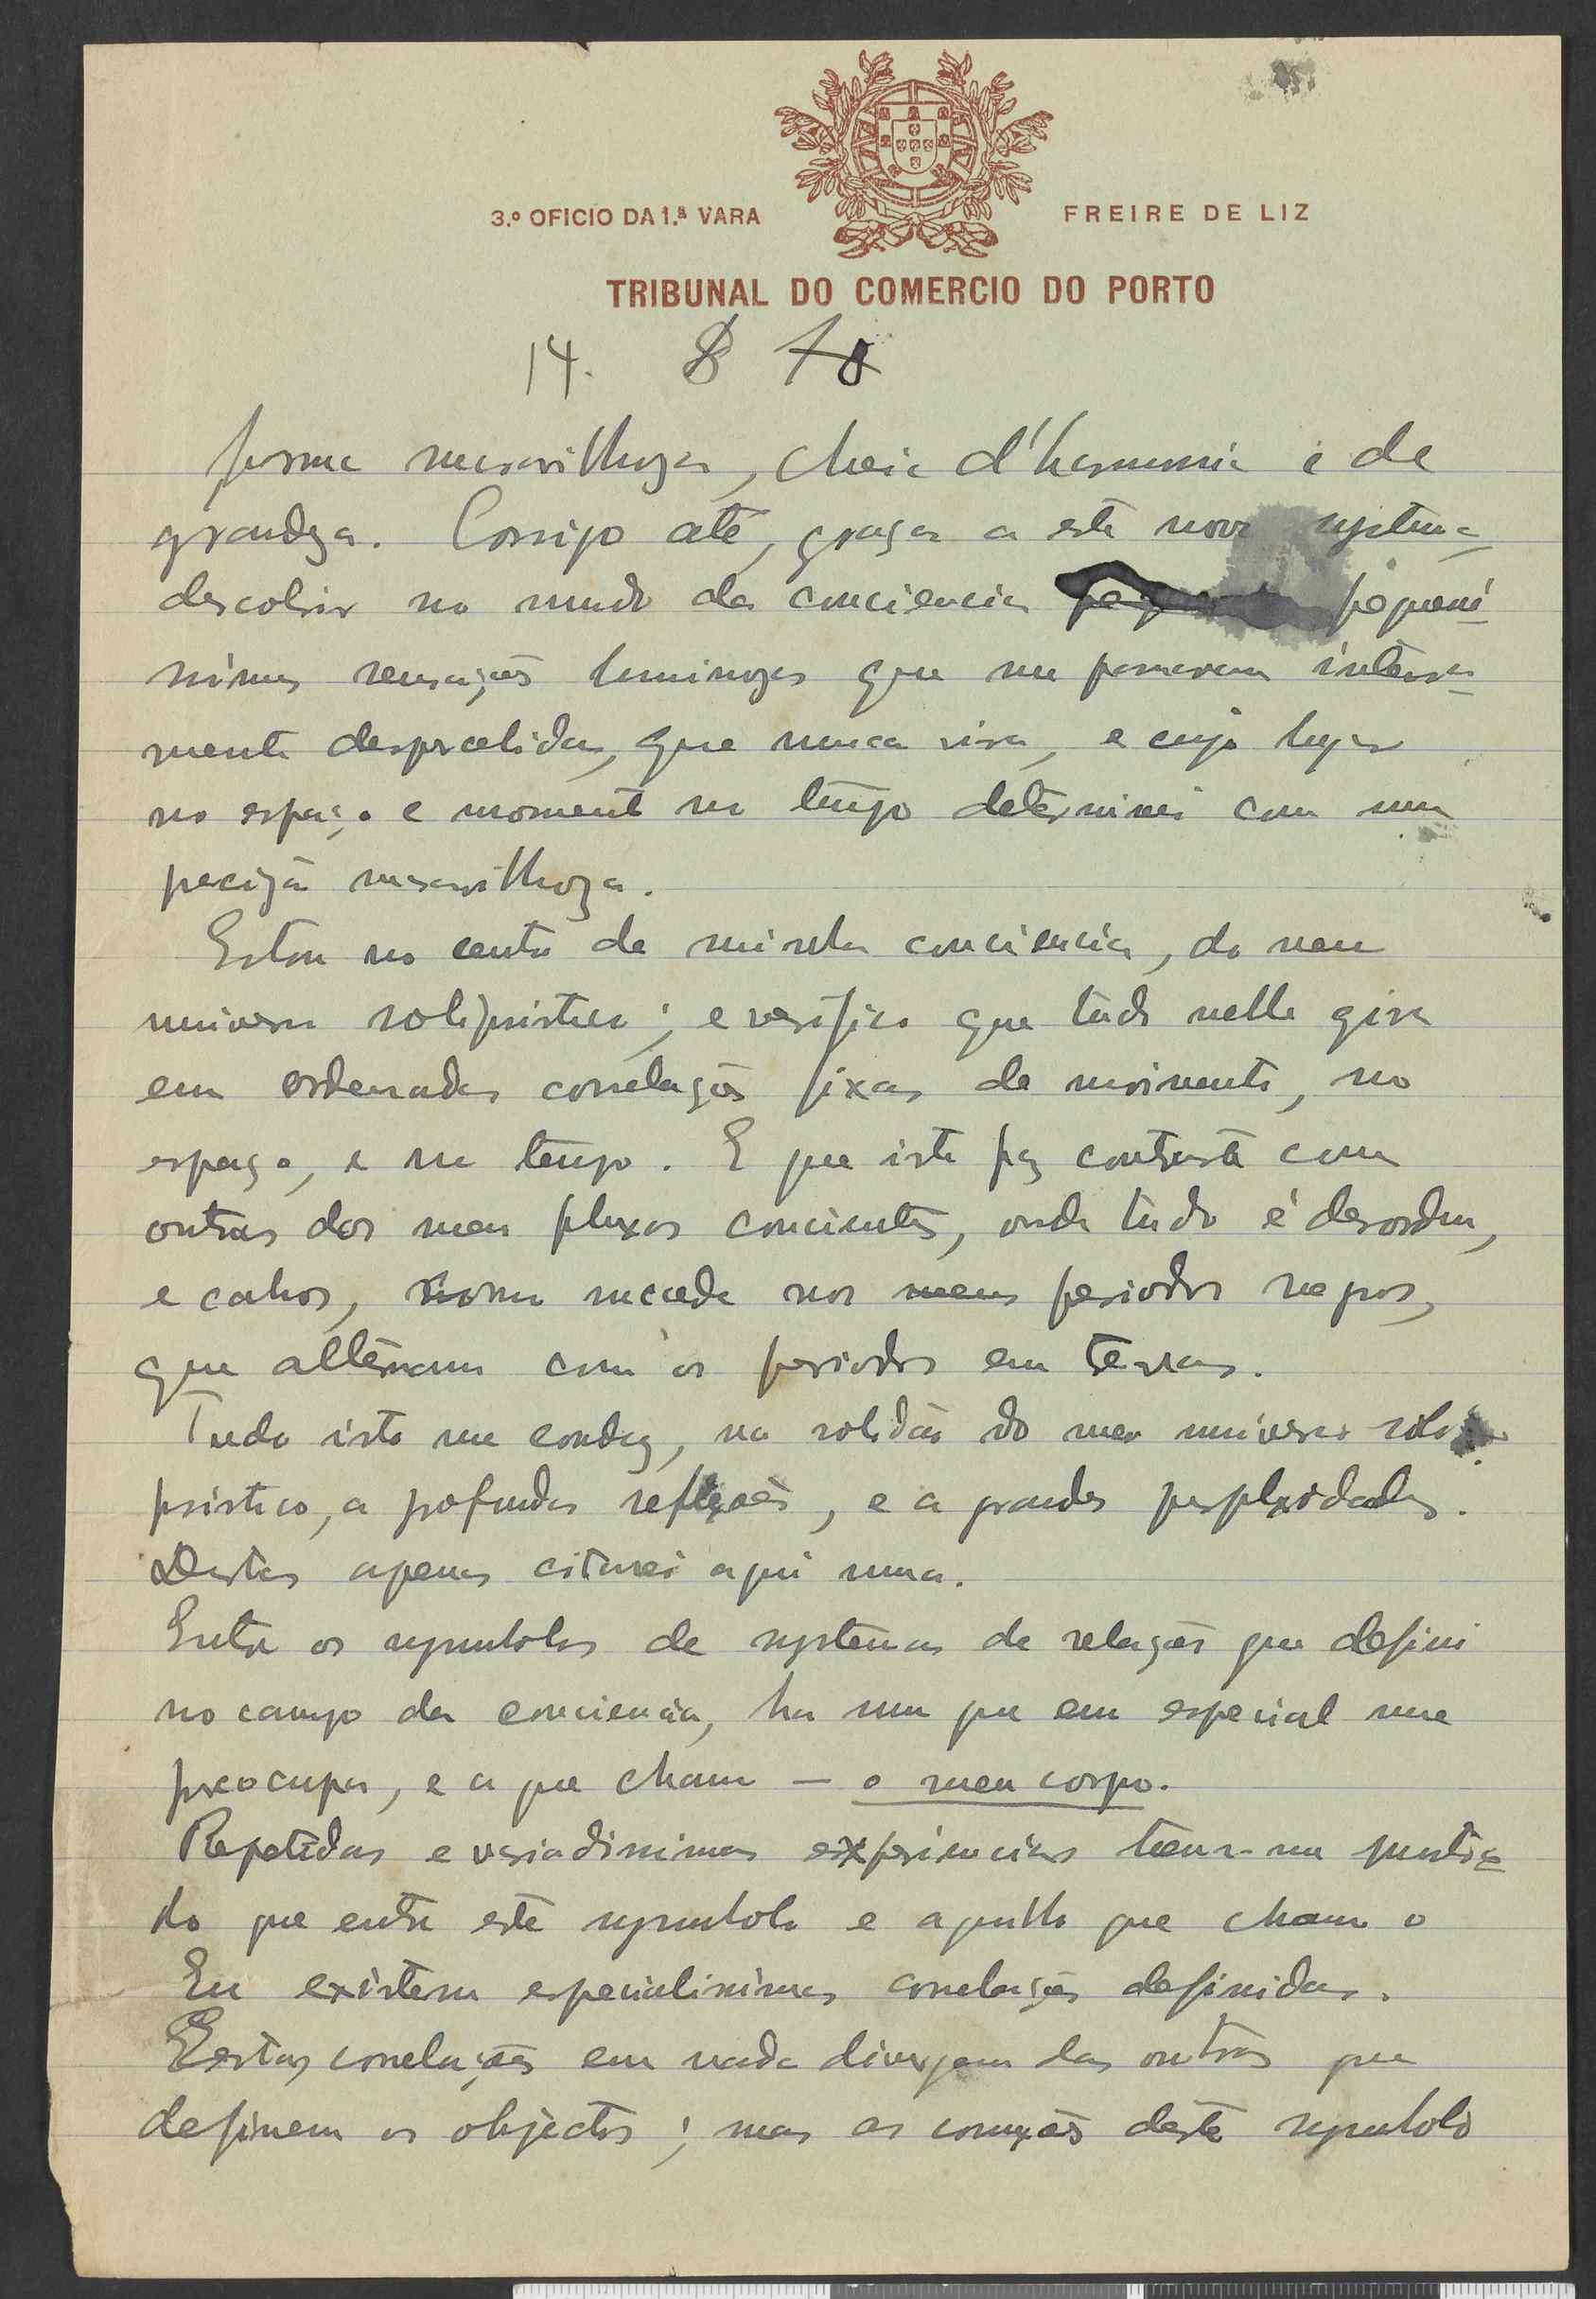 3.º OFICIO DA 1.ª VARA
FREIRE DE LIZ
TRIBUNAL DO COMERCIO DO PORTO
14.
forma maravilhoza, cheia d'harmonia e de
grandeza. Consigo até, graças a este novo systema
descobrir no mundo da conciencia pequení
nimas sensações luminozas que me passaram inteira
mente despercebidas, que nunca vira, e cujo lugar
no espaço e momento no tempo determinei com uma
precizão maravilhoza.
Estou no centro da minha conciencia, do meu
universo solipsistico; e verifico que tudo nelle gira
em ordenadas correlações fixas de movimento, no
espaço, e no tempo. E que isto faz contraste com
outros dos meus fluxos concientes, onde tudo é desordem,
e cahos, como sucede nos meus periodos negros,
que alternam com os periodos em
Tudo isto me conduz, na solidão do meu universo soli
psistico, a profundas reflexões, e a grandes perplexidades.
Destas apenas citarei aqui uma.
Entre os symbolos de systemas de relações que defini
no campo da conciencia, ha um que em especial me
preocupa, e a que chamo — o meu corpo.
Repetidas e variadissimas experiencias teem-me mostra
do que entre este symbolo e aquillo que chamo o
Eu existem especialissimas correlações definidas.
Estas correlações em nada divergem das outras que
definem os objectos; mas as conexões deste symbolo